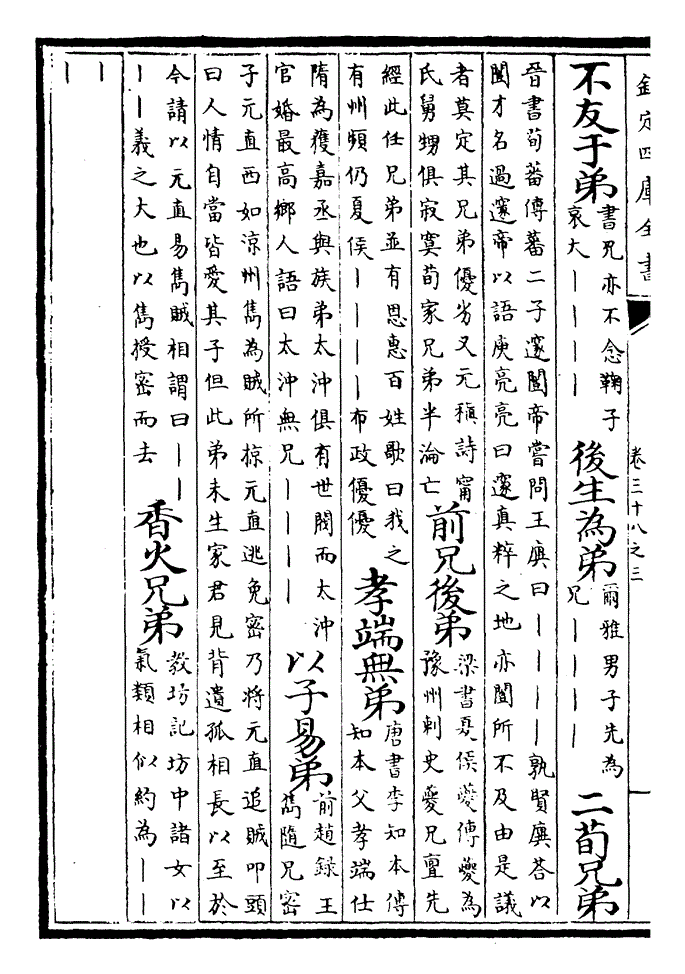 欽定四庫全書 卷三十八之三 一
不友于弟
書兄亦不念鞠子
哀大丨丨丨丨
後生為弟
爾雅男子先為
兄丨丨丨丨
二荀兄弟
晉書荀蕃傳蕃二子邃闓帝嘗問王廙曰丨丨丨丨孰賢廙荅以
闓才名過邃帝以語庾亮亮曰邃真粹之地亦闓所不及由是議
者莫定其兄弟優劣又元稹詩甯
氏舅甥俱寂寞荀家兄弟半淪亡
前兄後弟
梁書夏侯夔傳夔為
豫州刺史夔兄亶先
經此任兄弟並有恩惠百姓歌曰我之
有州頻仍夏侯丨丨丨丨布政優優
孝端無弟
唐書李知本傳
知本父孝端仕
隋為獲嘉丞與族弟太沖俱有世閥而太沖
官婚最高鄉人語曰太沖無兄丨丨丨丨
以子易弟
前趙録王
儁隨兄密
子元直西如涼州儁為賊所掠元直逃免密乃將元直追賊叩頭
曰人情自當皆愛其子但此弟未生家君見背遺孤相長以至於
今請以元直易儁賊相謂曰丨丨
丨丨義之大也以儁授密而去
香火兄弟
教坊記坊中諸女以
氣類相似約為丨丨
丨
丨